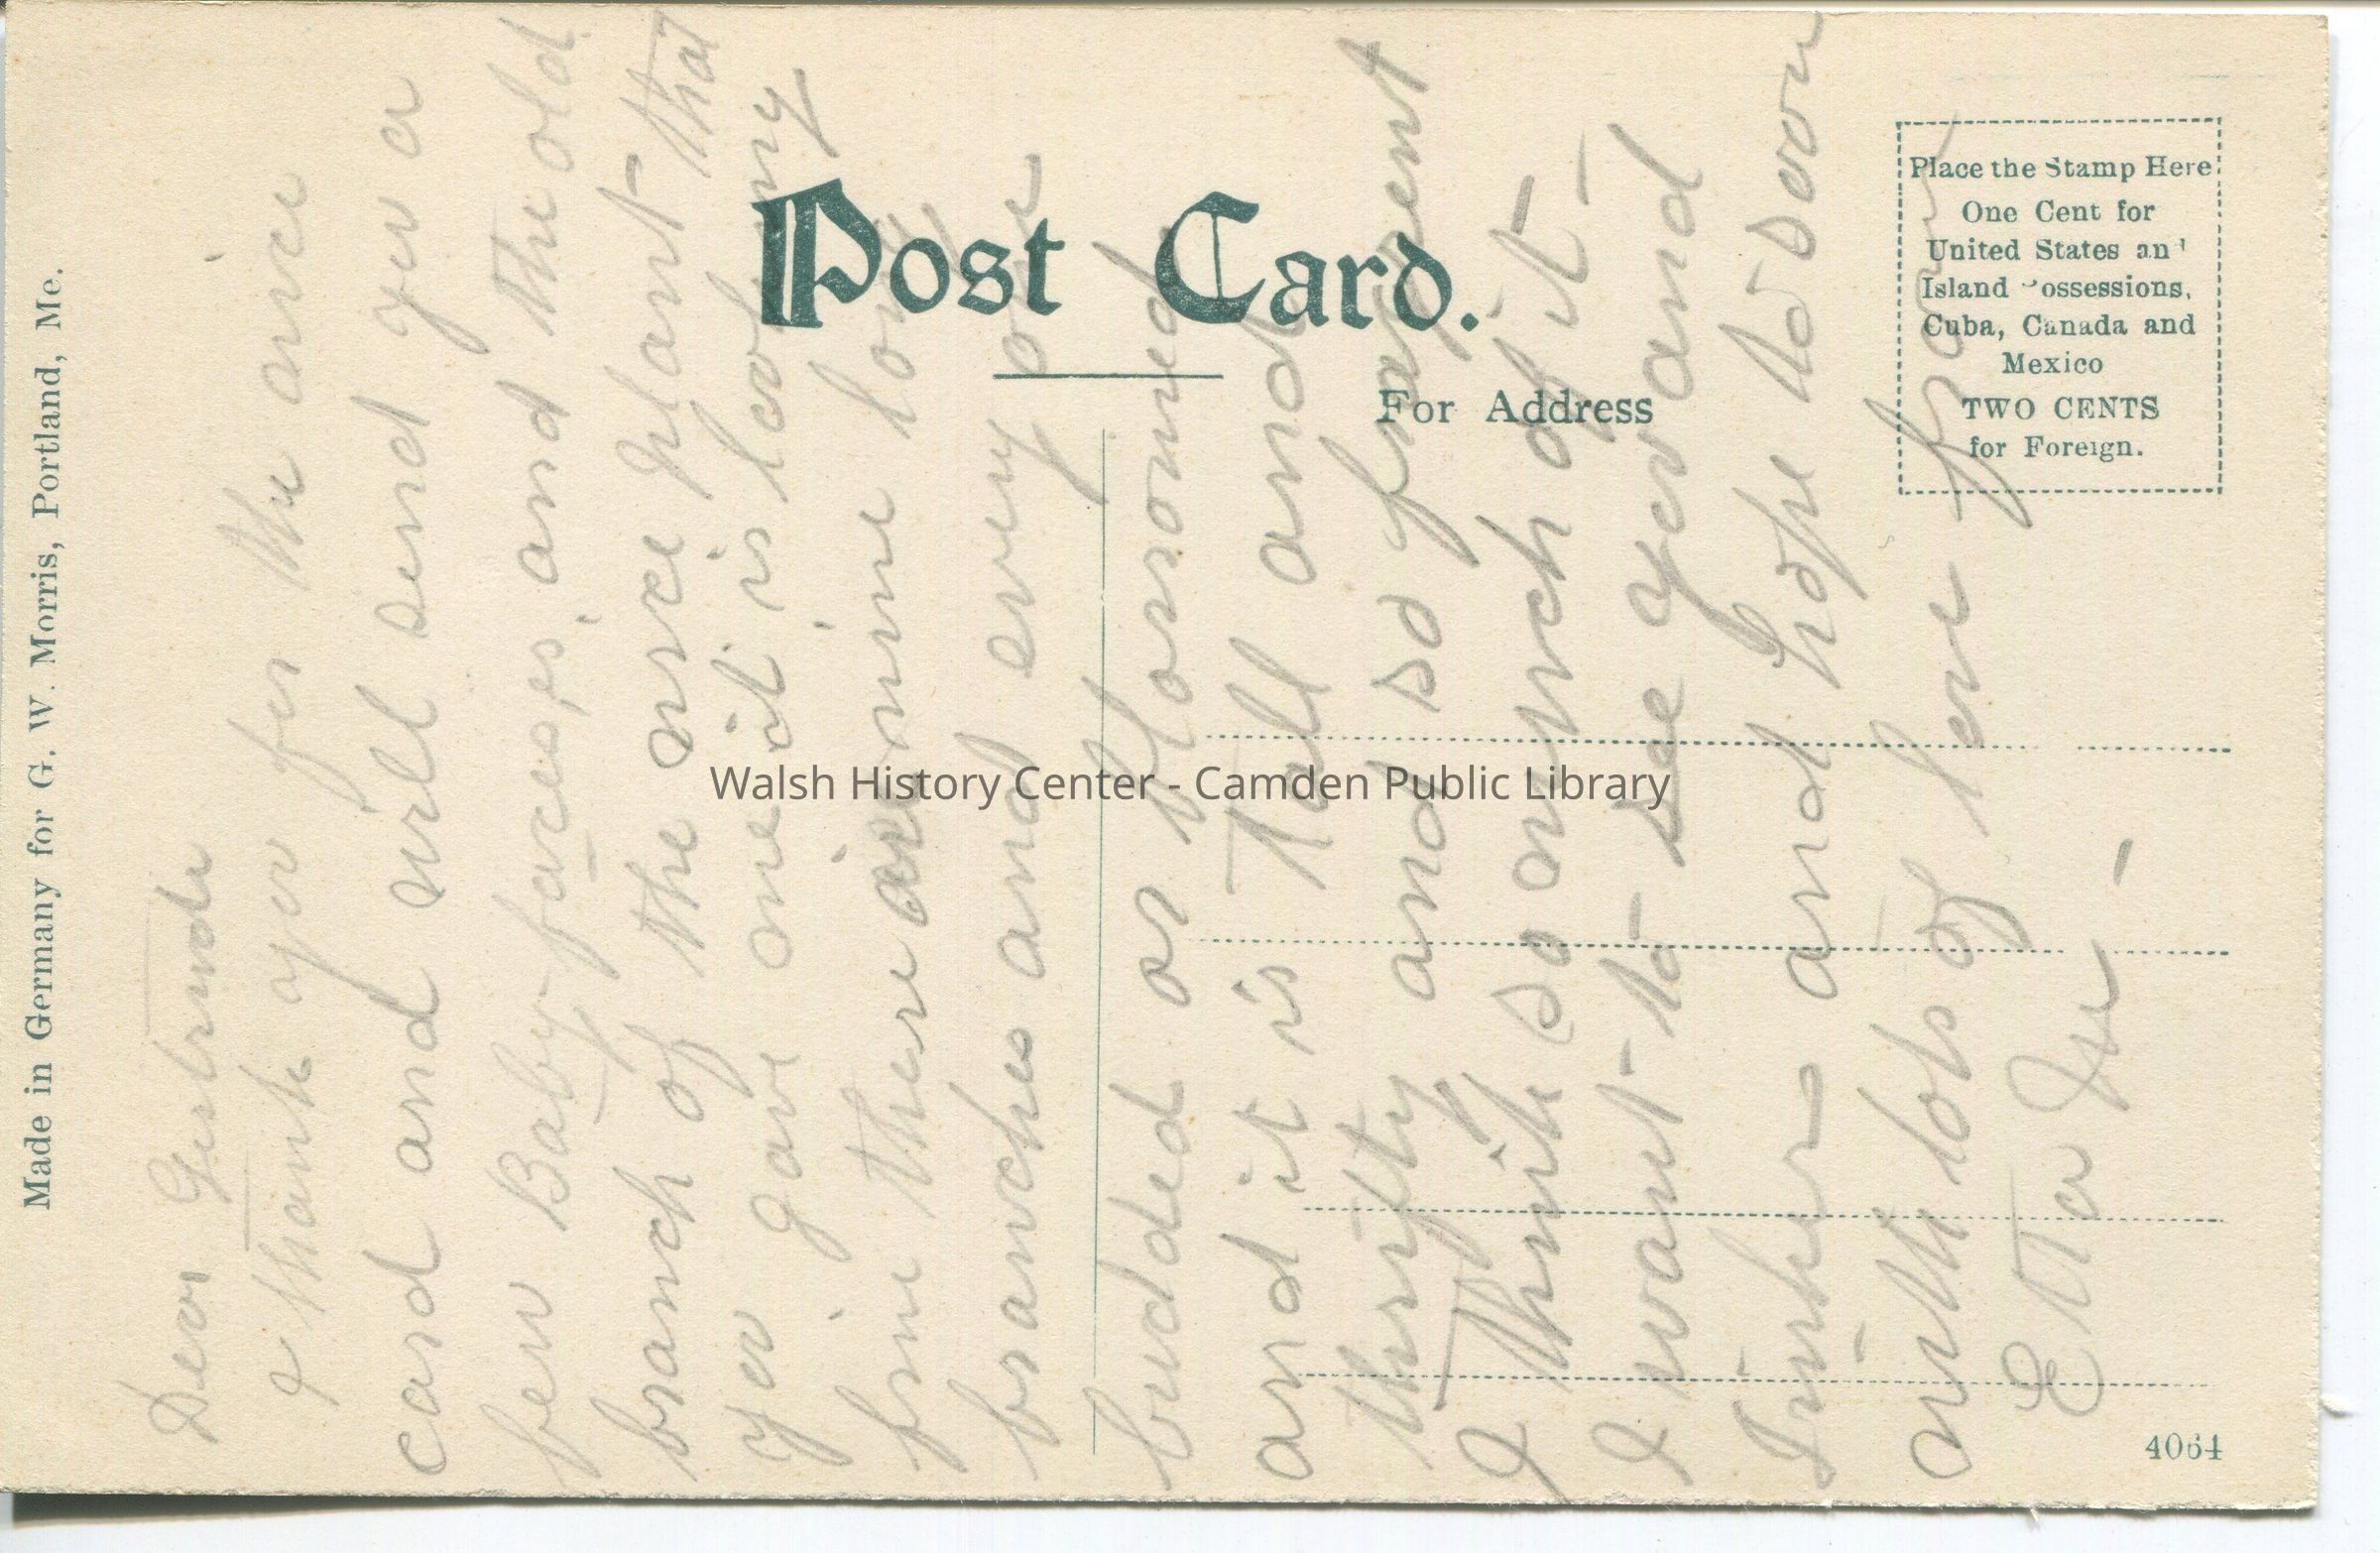 Made in Germany for G. W. Morris, Portland, Me.
Post Card.
For Address
Place the Stamp Here
One Cent for
United States an
Island ossessions,
Cuba, Canada and
Mexico
TWO CENTS
for Foreign.
4064
Walsh History Center - Camden Public Library
Dear Gertrude
I thank you for the nice
card and will send you a
few Baby faces, and the old
branch of the rice plant that
you gave me it is looking
fine there are nine long
branches and every one
budded or blosomed
and it is tall and
thrifty and so fragrent
I think so much of it-
I want to see you and
and hope to soon
with lots of love from
Etta Ju-